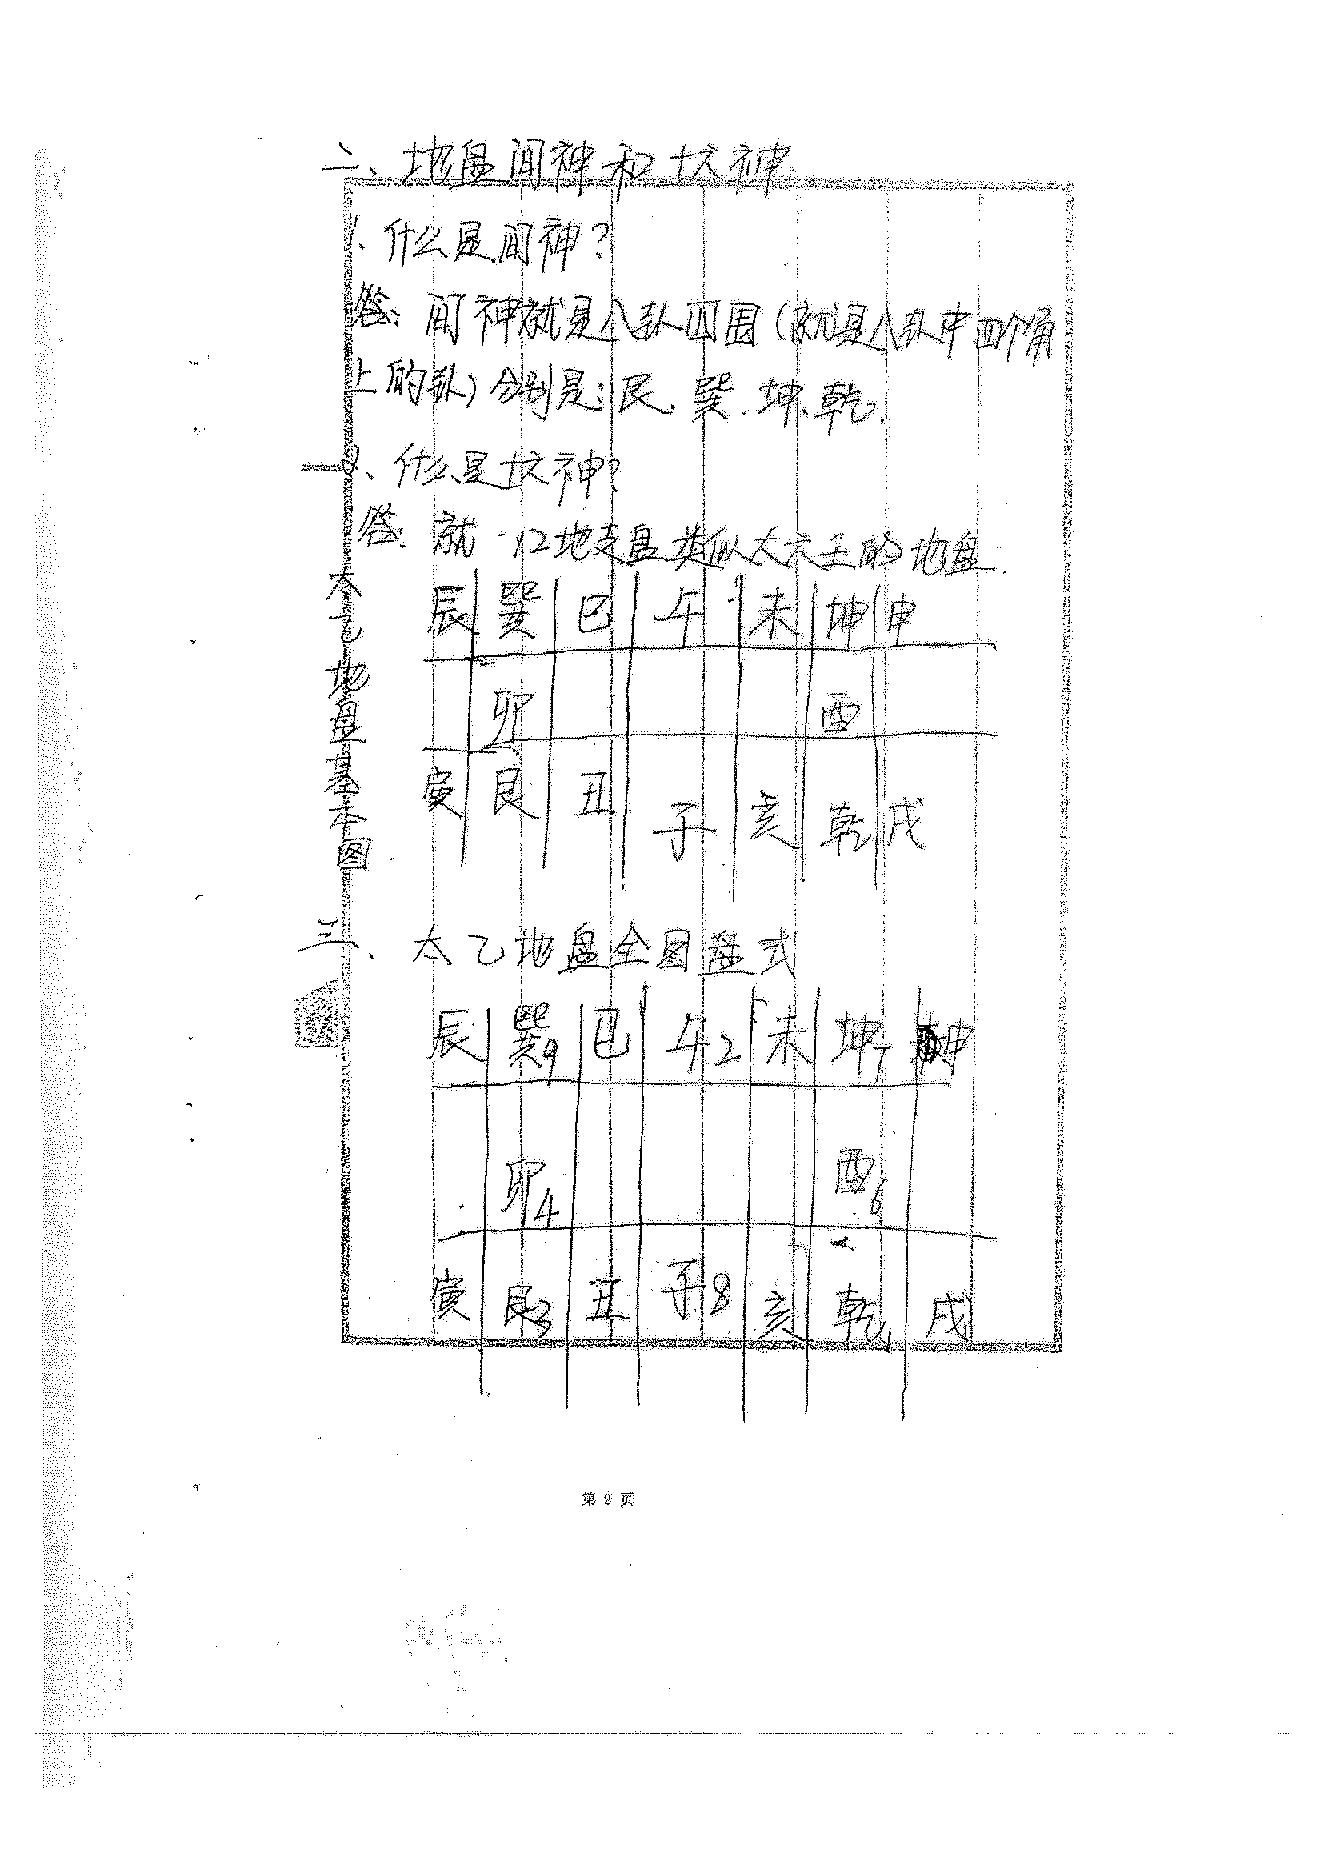 二、地盘间神和支神
1、什么是间神？
答：间神就是八卦四围（就是八卦中四个角
上的卦）分别是：艮、巽、坤、乾.
2、什么是支神？
答：就12地支盘类似大六壬的地盘.
太乙地盘基本图
辰 巽 巳 午 未 坤 申
卯 酉
寅 艮 丑 子 亥 乾 戌
三、太乙地盘全图盘式
辰 巽9 巳 午2 未 坤7 申
卯4 酉6
寅 艮3 丑 子8 亥 乾 戌
第 2 页